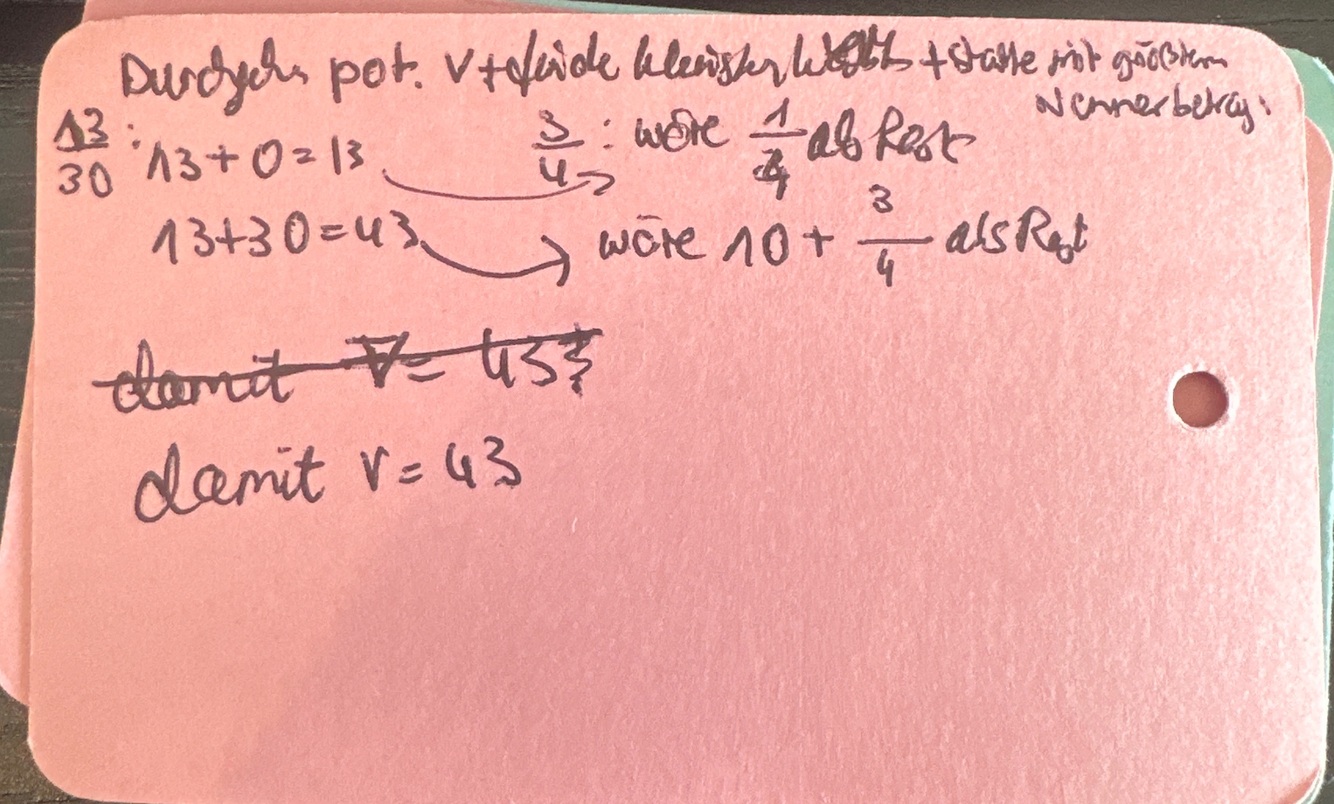 Durchgeh. pot. V + finde kleinsten Wert + starte mit größtem
Nennerbetrag:
13/30: 13+0=13 3/4: wäre 1/4 als Rest
13+30=43 wäre 10 + 3/4 als Rest
damit V = 43
damit V = 43